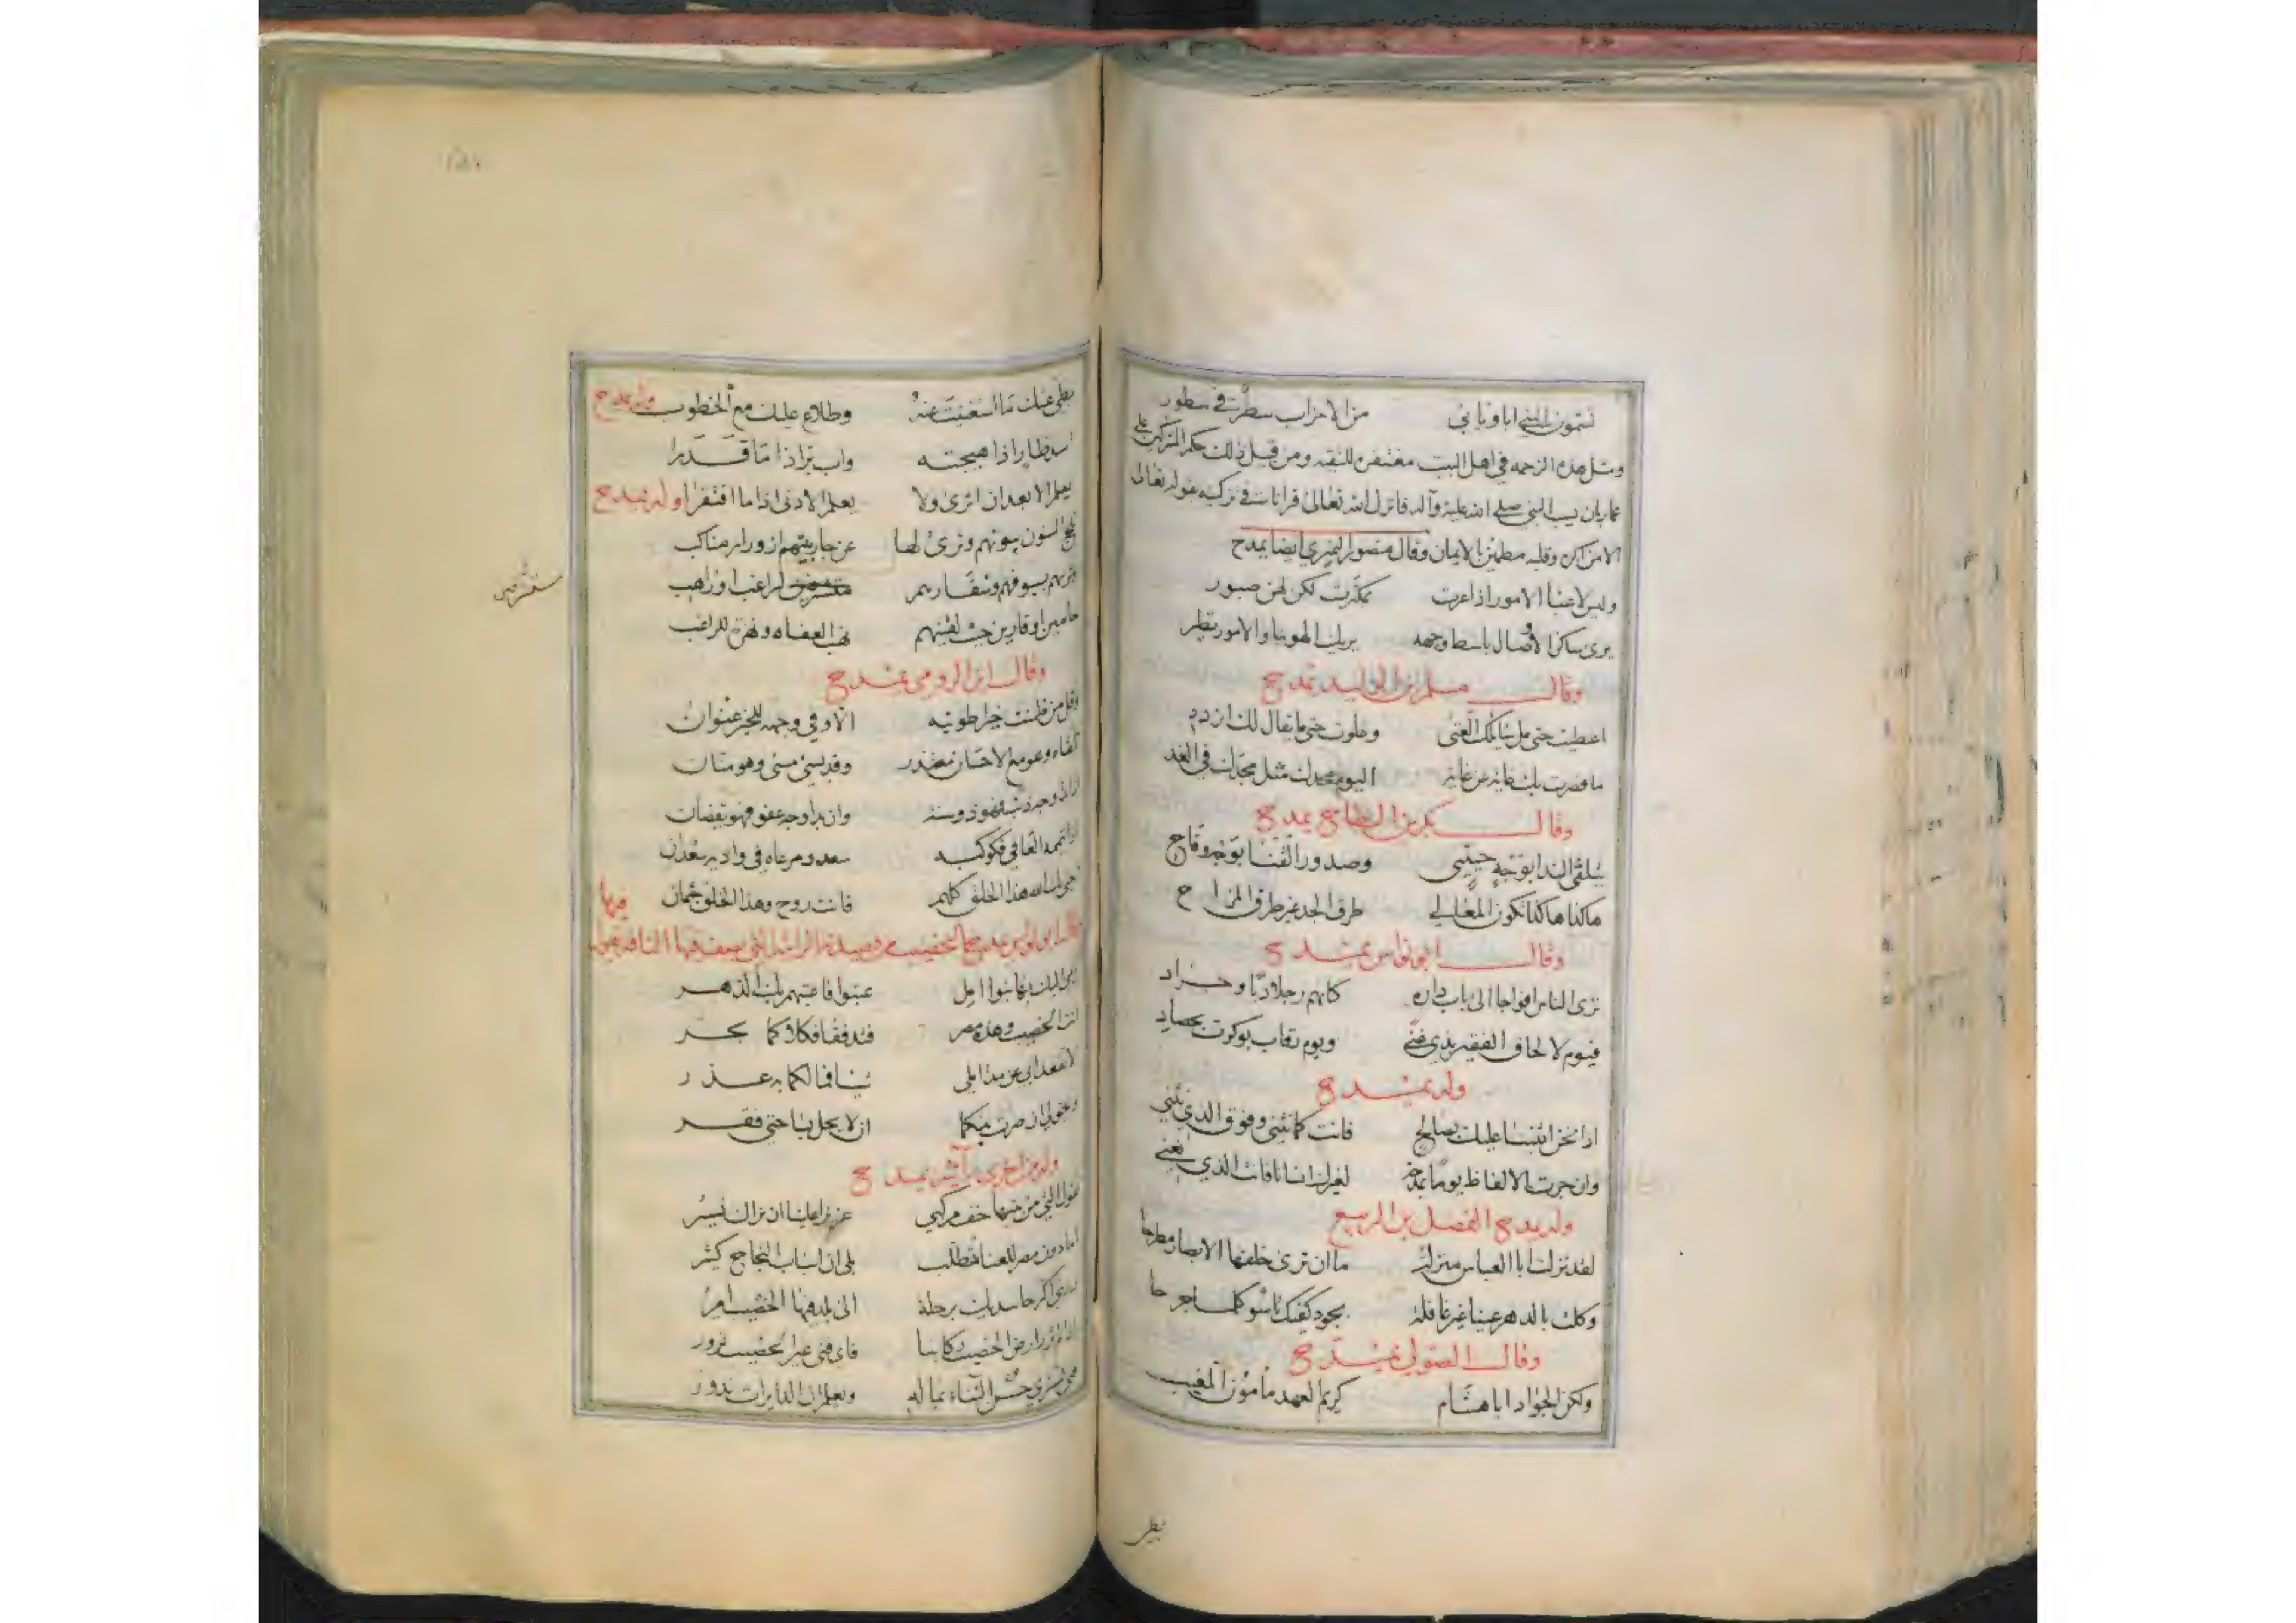 تسمون النبي ابا ويابي من الاحزاب سطر في سطور
ومثل هذه الزحمه في اهل البيت مغتفرة للتقيه ومن قبل ذلك حكم المشركين على
عمار بان يسب النبي صلى الله عليه وآله فانزل الله تعالى قرانا في تزكيه بقوله تعالى
الا من اكره وقلبه مطمئن بالايمان وقال منصور النميري ايضا يمدح
وليس لاعباء الامور اذا اعرت بمكترث لكن لهن صبور
يرى ساكن الاوصال باسط وجهه يريك الهوينا والامور تطير
وقال مسلم بن الوليد يمدح
اعطيت حتى مل سائلك الغنى وعلوت حتى ما يقال لك ازدد
ما قصرت بك غاية عن غاية اليوم مجدك مثل مجدك في الغد
وقال بكر بن النطاح يمدح
يتلقى الندا بوجه حيي وصدور القنا بوجه وقاح
هاكذا هاكذا تكون المعالي طرق الجد غير طرق المزاح
وقال ابو نواس يمدح
ترى الناس افواجا الى باب داره كانهم رجلا دبا وجراد
فيوم لالحاق الفقير بذي غنى ويوم رقاب بوكرت بحصاد
وله يمدح
اذا نحن اثنينا عليك بصالح فانت كما نثني وفوق الذي نثني
وان جرت الالفاظ يوما بمدحة لغيرك انسانا فانت الذي نعني
وله يمدح الفضل بن الربيع
لقد نزلت ابا العباس منزلة ما ان ترى خلفها الابصار مطرحا
وكلت بالدهر عينا غير غافلة بجود كفك تاسو كلما جرحا
وقال الصولي يمدح
ولكن الجواد ابا هشام كريم العهد مامون المغيب
بطئ
بطئ عنك ما استغنيت عنه وطلاع عليك مع الخطوب وله يمدح
اسد ضار اذا هيجته واب بر اذا ما قدرا
يعلم الابعد ان اثرى ولا يعلم الادنى اذا ما افتقرا وله يمدح
السنون بيوتهم وترى لها عن جار بيتهم ازورار مناكب
بسيوفهم وشفارهم مستشرفين لراغب او راهب
مستشرفين
حامين او قارين حيث لقيتهم نهب العفاه ونهزة للراغب
وقال ابن الرومي يمدح
وقل من ظمنت خيرا طويته الا وفي وجهه للخير عنوان
تلقاه وهو مع الاحسان معتذر وقد يسئ مسئ وهو منان
وان بدا وجه عفو فهو يقضان
اذا تيممه العافي فكوكبه سعد ومرعاه في واديه سعدان
هذا الخلق كلهم فانت روح وهذا الخلق جثمان
قال ابو نواس يمدح الخصيب من قصيدته الرائية التي يصف فيها الناقة يقول فيها
عتبوا فاعتبهم بك الدهر
انت الخصيب وهذه مصر فتدفقا فكلاكما بحر
لا تقعدا بي عن مدا املي شيئا فما لكما به عذر
ويحق لي اذ صرت بينكما ان لا يحل بساحتي فقر
وله من اخرى يمدح
تقول التي من بيتها خف مركبي عزيز علينا ان نراك تسير
اما دون مصر للغنا متطلب بلى ان اسباب النجاح كثير
ذريني اكثر حاسديك برحلة الى بلد فيها الخصيب امير
اذا لم تزر ارض الخصيب ركابنا فاي فتى غير الخصيب تزور
فتى يشتري حسن الثناء بماله ويعلم ان الدايرات تدور